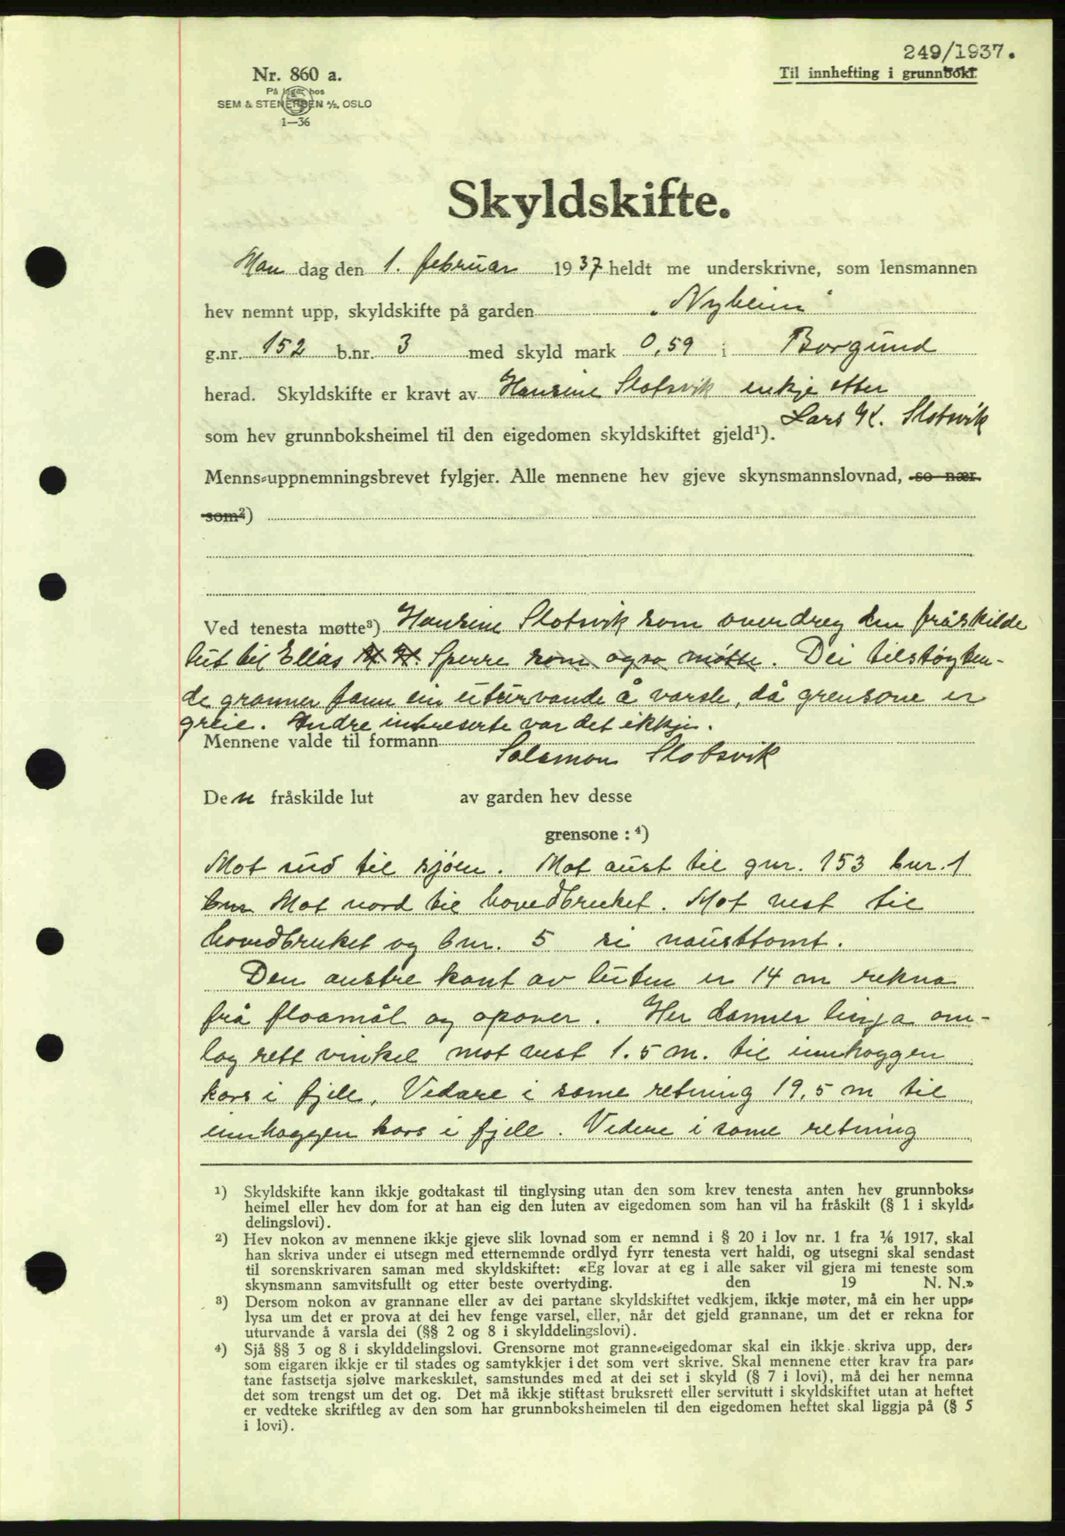 249/1937.
Nr. 860 a.
Til innhefting i grunnboki.
På lager hos
SEM & STENERSEN A/S, OSLO
1—36
Skyldskifte.
Man dag den 1. februar 1937 heldt me underskrivne, som lensmannen
hev nemnt upp, skyldskifte på garden "Nyheim"
g.nr. 152 b.nr. 3 med skyld mark 0,59 i Borgund
herad. Skyldskifte er kravt av Hansine Slotsvik enkje etter
Lars K. Slotsvik
som hev grunnboksheimel til den eigedomen skyldskiftet gjeld¹).
Menns-uppnemningsbrevet fylgjer. Alle mennene hev gjeve skynsmannslovnad, so nær
som²)
Ved tenesta møtte³) Hansine Slotsvik som overdreg den fråskilde
lut til Ellas Sperre som også møtte. Dei tilstøyten-
de granner fann ein uturvande å varsle, då grensone er
greie. Andre intreserte var det ikkje.
Mennene valde til formann Salamon Slotsvik
Den fråskilde lut av garden hev desse
grensone : ⁴)
Mot sud til sjøen. Mot aust til gnr. 153 bnr. 1
bnr Mot nord til hovedbruket. Mot vest til
hovedbruket og bnr. 5 si nausttomt.
Den austre kant av luten er 14 m rekna
frå floamål og opover. Her danner linja om-
lag rett vinkel mot vest 1.5 m. til innhoggen
kors i fjell, Vedare i same retning 19,5 m til
innhoggen kors i fjell. Videre i same retning
¹) Skyldskifte kann ikkje godtakast til tinglysing utan den som krev tenesta anten hev grunnboks-
heimel eller hev dom for at han eig den luten av eigedomen som han vil ha fråskilt (§ 1 i skyld-
delingslovi).
²) Hev nokon av mennene ikkje gjeve slik lovnad som er nemnd i § 20 i lov nr. 1 fra 1/6 1917, skal
han skriva under ei utsegn med etternemnde ordlyd fyrr tenesta vert haldi, og utsegni skal sendast
til sorenskrivaren saman med skyldskiftet: «Eg lovar at eg i alle saker vil gjera mi teneste som
skynsmann samvitsfullt og etter beste overtyding. den 19 N. N.»
³) Dersom nokon av grannane eller av dei partane skyldskiftet vedkjem, ikkje møter, må ein her upp-
lysa um det er prova at dei hev fenge varsel, eller, når det gjeld grannane, um det er rekna for
uturvande å varsla dei (§§ 2 og 8 i skylddelingslovi).
⁴) Sjå §§ 3 og 8 i skylddelingslovi. Grensorne mot granne-eigedomar skal ein ikkje skriva upp, der-
som eigaren ikkje er til stades og samtykkjer i det som vert skrive. Skal mennene etter krav fra par-
tane fastsetja sjølve markeskilet, samstundes med at dei set i skyld (§ 7 i lovi), må dei her nemna
det som trengst um det og. Det må ikkje stiftast bruksrett eller servitutt i skyldskiftet utan at heftet
er vedteke skriftleg av den som har grunnboksheimelen til den eigedomen heftet skal liggja på (§ 5
i lovi).